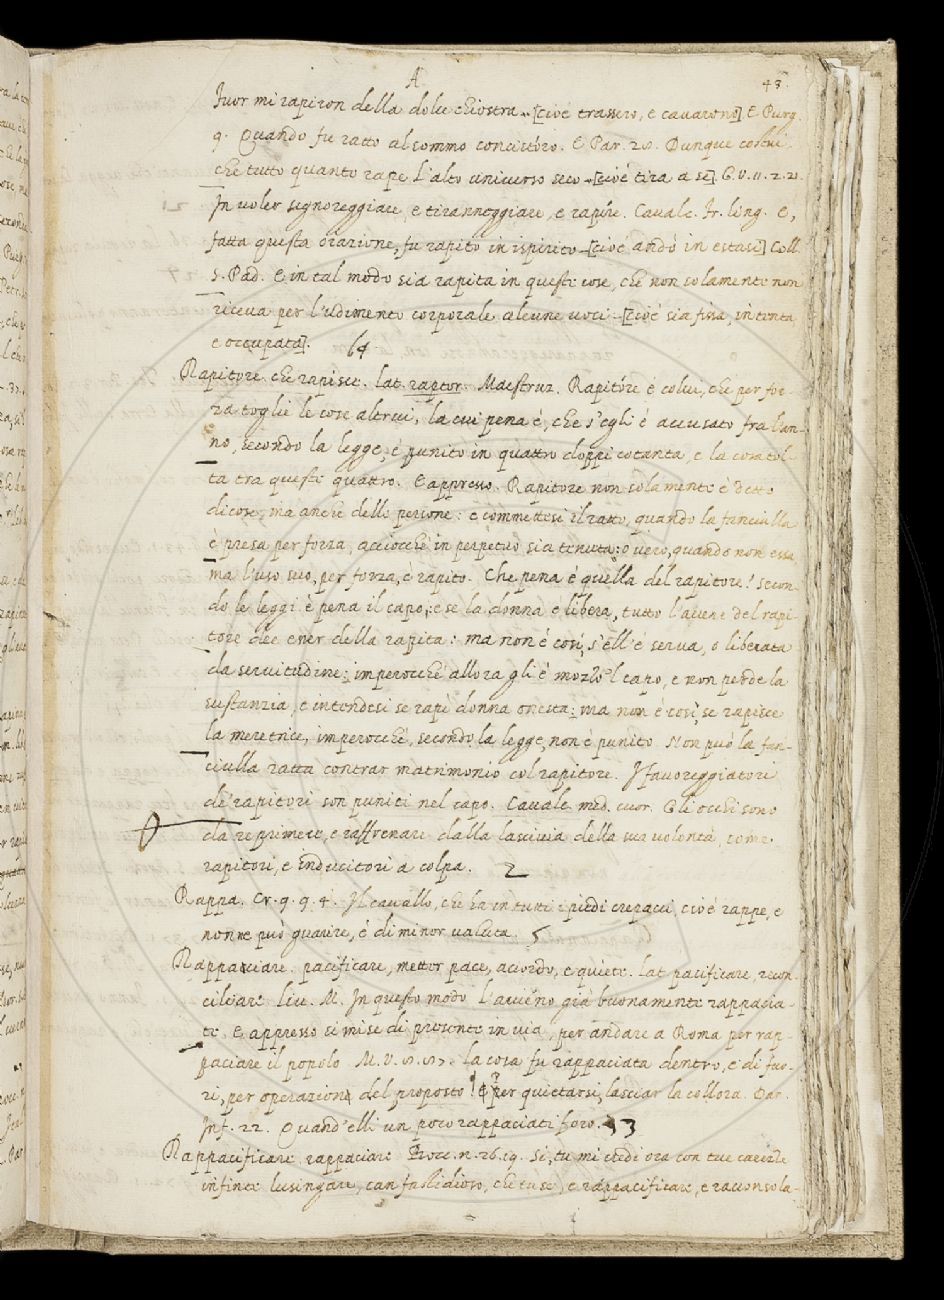 A 43.
fuor mi rapiron della dolce chiostra. [cioè trassero, e cavarono] E Purg.
9. Quando fu ratto al sommo concistoro. E Par. 28. Dunque costui,
che tutto quanto rape L'alto universo seco. [cioè tira a se]. G. V. 11. 2. 21.
In voler signoreggiare, e tiranneggiare, e rapire. Cavalc. fr. ling. E,
fatta questa orazione, fu rapito in ispirito. [cioè andò in estasi] Coll.
S. Pad. E in tal modo sia rapita in queste cose, che non solamente non
riceva per l'udimento corporale alcune voci. [cioè sia fissa, intenta,
e occupata]. 64
Rapitore. che rapisce. lat. raptor. Maestruz. Rapitóre è colui, che per for-
za toglie le cose altrui, la cui pena è, che s'egli è accusato fra l'an-
no, secondo la legge, è punito in quattro doppi cotanta, e la cosa tol-
ta tra questi quattro. E appresso. Rapitore non solamente è detto
di cose, ma anche delle persone: e commettesi il ratto, quando la fanciulla
è presa per forza, acciocchè in perpetuo sia tenuta: o vero, quando non essa,
ma l'uso suo, per forza, è rapito. Che pena è quella del rapitore! Secon-
do le leggi è pena il capo, e se la donna è libera, tutto l'avere del rapi-
tore dee esser della rapita: ma non è così, s'ell'è serva, o liberata
da servitudine: imperocchè allora gli è mozzo 'l capo, e non perde la
sustanzia, e intendesi se rapì donna onesta: ma non è così, se rapisce
la meretrice, imperocchè, secondo la legge, non è punito. Non può la fan-
ciulla ratta contrar matrimonio col rapitore. I favoreggiatori
de' rapitori son puniti nel capo. Cavalc. med. cuor. Gli occhi sono
da reprimere, e raffrenare dalla lascivia della sua volontà, come
rapitori, e inducitori a colpa. 2
Rappa. Cr. 9. 9. 4. Il cavallo, che ha in tutti i piedi crepacci, cioè rappe, e
non ne può guarire, è di minor valuta. 5
Rappaciare. pacificare, metter pace, accordo, e quiete. lat. pacificare, recon-
ciliare. Liv. M. In questo modo l'avvéno già buonamente rappacia-
te. E appresso si mise di presente in via, per andare a Roma per rap-
paciare il popolo. M. V. 8. 87. la cosa fu rappaciata dentro, e di fuo-
ri, per operazione del proposto! E per quietarsi, lasciar la collora. Dan.
Inf. 22. Quand'elli un poco rappaciati foro. 33
Rappacificare. rappaciare. Bocc. n. 26. 19. Si, tu mi credi ora con tue carezze
infinte lusingare, can fastidioso, che tu se', e rappacificare, e racconsola-